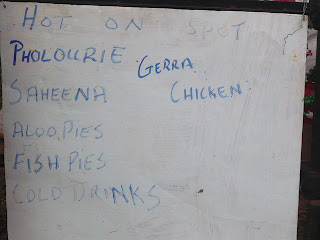 HOT ON SPOT
PHOLOURIE
GERRA
SAHEENA
CHICKEN
ALOO PIES
FISH PIES
COLD DRINKS